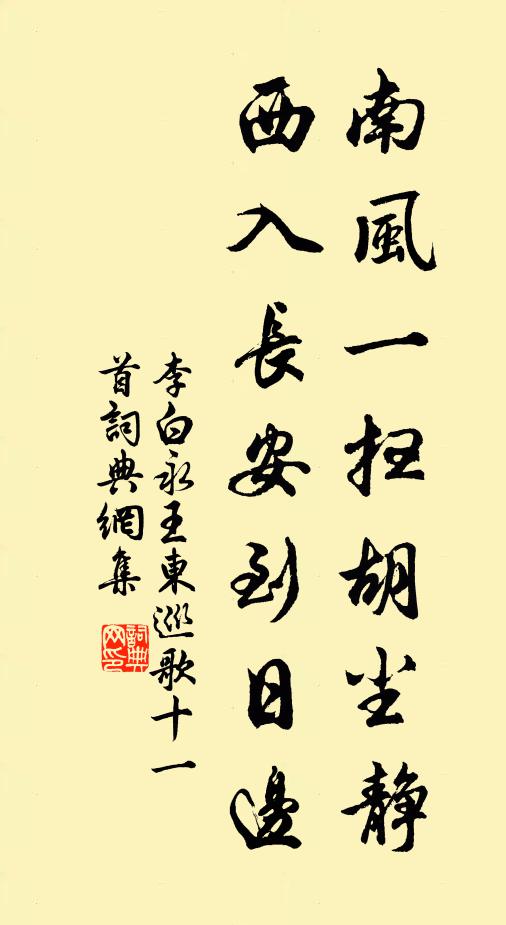 南風一扫胡尘静
西入長安到日邊
李白永王東巡歌十一
首詞典網集
詞典网印